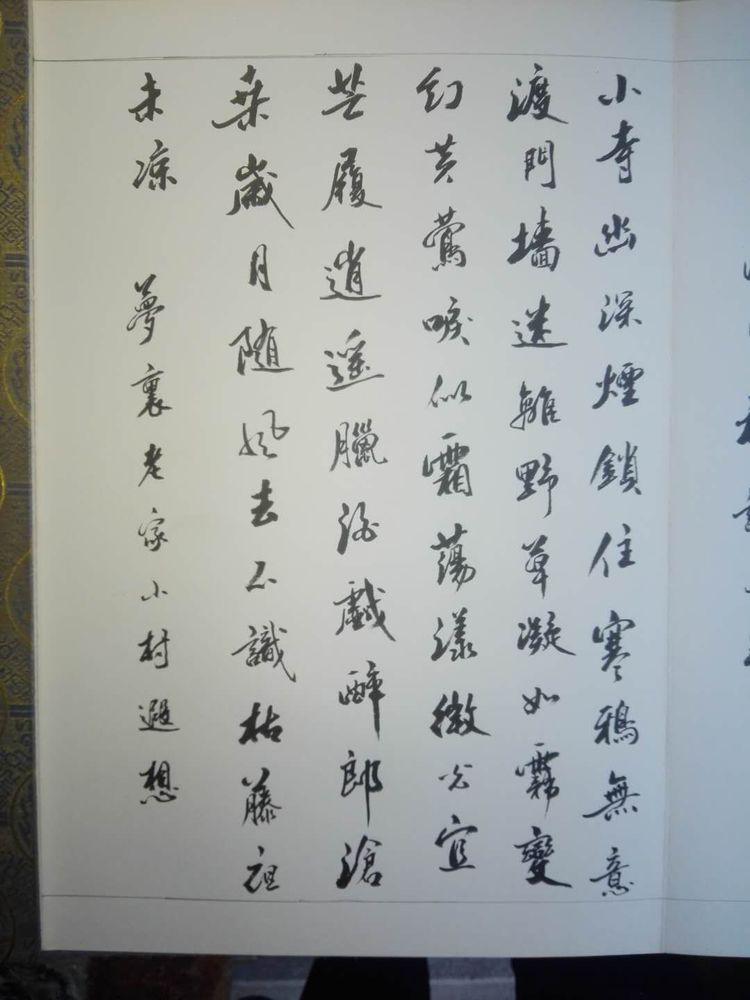 小寺幽深煙鎖住寒鴉無意
渡門墻迷離野草凝如霧變
幻黃鶯唳似霜蕩漾微光宜
芒履逍遙臘酒戲醉郎滄
桑歲月随風去不識枯藤祖
未涼 夢裏老家小村遐想